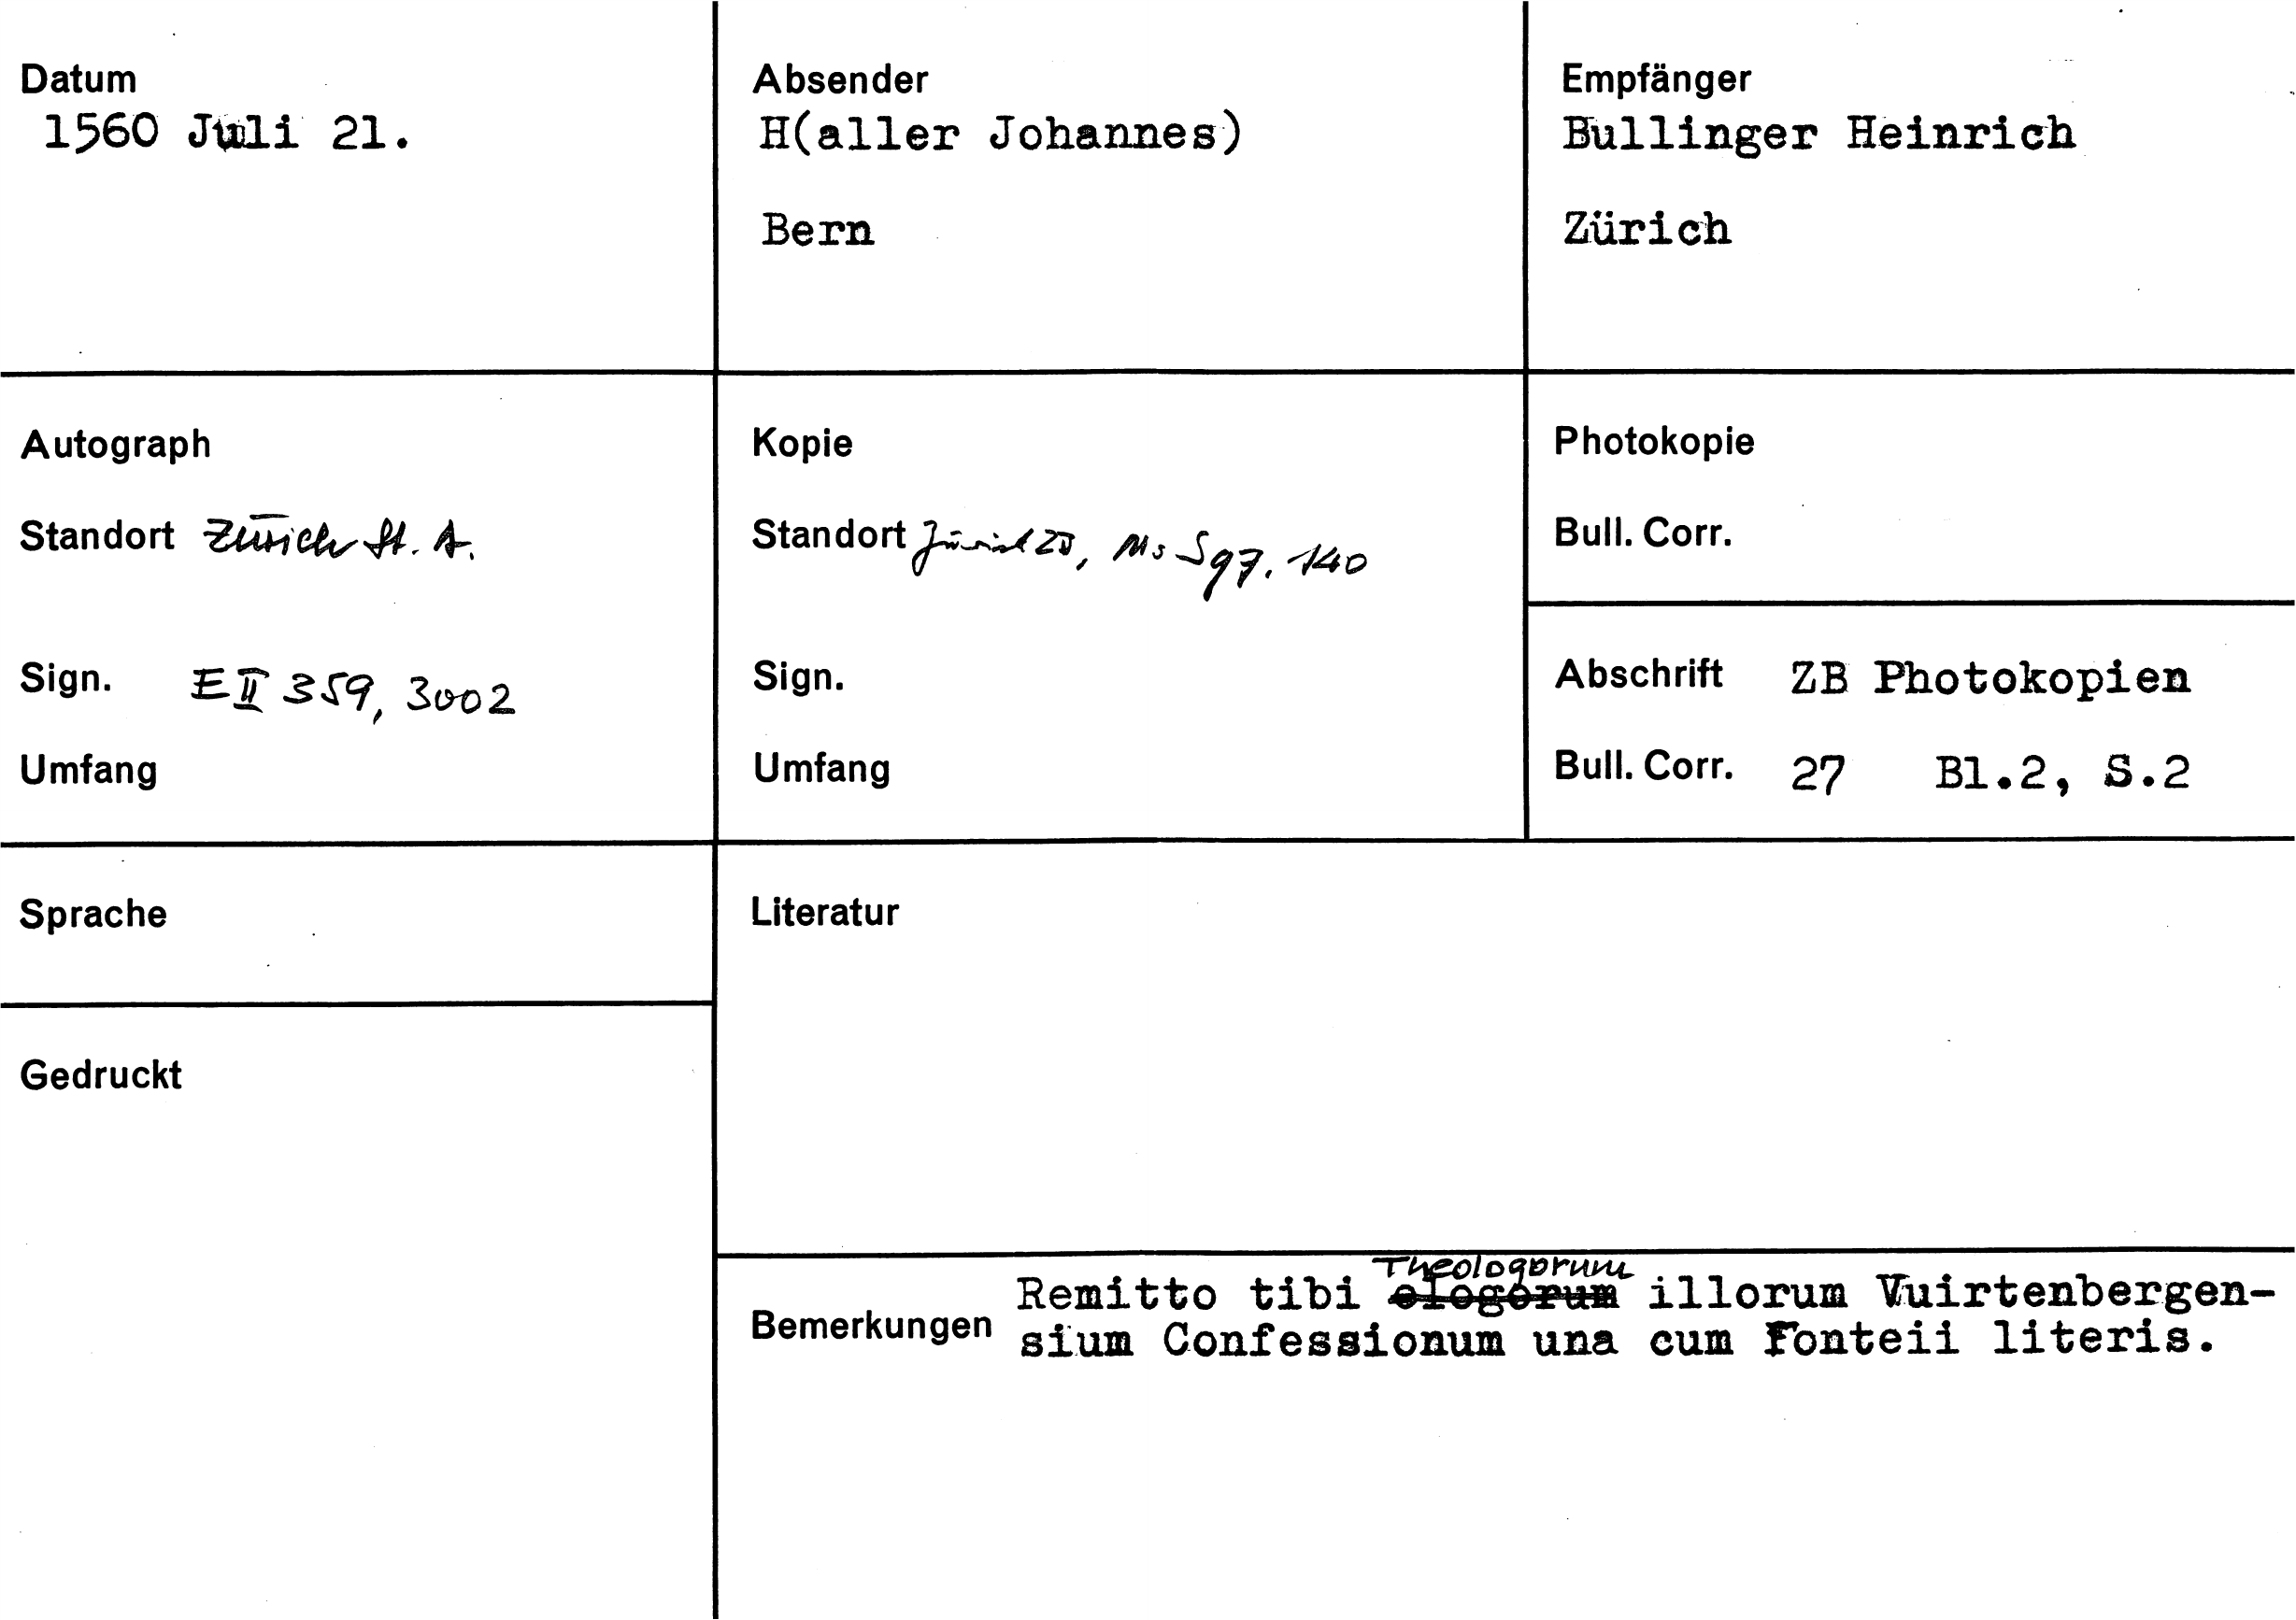 Datum
1560 Juli 21.
Absender
H(aller Johannes)
Bern
Empfänger
Bullinger Heinrich
Zürich
Autograph
Standort Zürich St. A.
Sign. E II 359, 3002
Umfang
Kopie
Standort Zürich ZB, Ms S 97. 140
Sign.
Umfang
Photokopie
Bull. Corr.
Abschrift ZB Photokopien
Bull. Corr. 27 Bl.2, S.2
Sprache
Gedruckt
Literatur
Bemerkungen
Theologorum
Remitto tibi elogorum illorum Vuirtenbergen-
sium Confessionum una cum Fonteii literis.